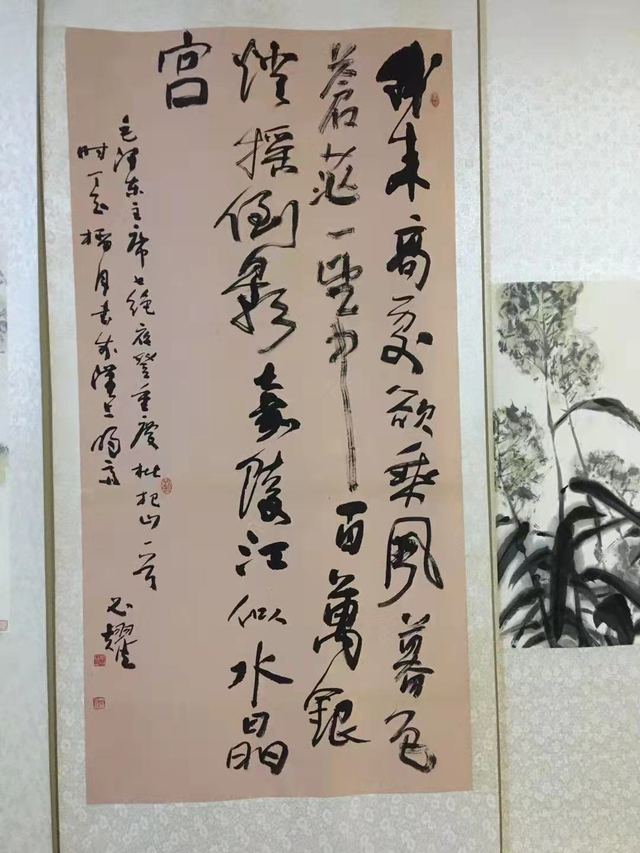 我来高处欲乘风暮色
苍茫一望中百万银
灯摇倒影嘉陵江似水晶
宫
毛泽东主席七绝夜登重庆枇杷山一首
时丁亥榴月书于汉上
志耀